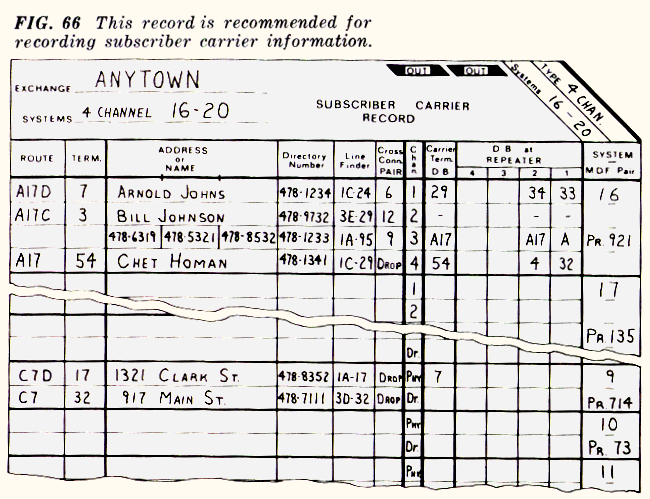 FIG. 66 This record is recommended for
recording subscriber carrier information.
OUT OUT
Systems 16-20
TYPE 4 CHAN.
EXCHANGE ANYTOWN
SYSTEMS 4 CHANNEL 16-20
SUBSCRIBER CARRIER
RECORD
ROUTE TERM. ADDRESS or NAME Directory Number Line Finder Cross Conn. PAIR Chan. Carrier Term. DB DB at REPEATER 4 3 2 1 SYSTEM MDF Pair
A17D 7 ARNOLD JOHNS 478-1234 1C-24 6 1 29 34 33 16
A17C 3 BILL JOHNSON 478-9732 3E-29 12 2 - - -
478-6319 478-5321 478-8532 478-1233 1A-95 9 3 A17 A17 A PR. 921
A17 54 CHET HOMAN 478-1341 1C-29 DROP 4 54 4 32
1 17
2
PR 135
Dr.
C7D 17 1321 CLARK ST. 478-8352 1A-17 DROP PHY 7 9
C7 32 917 MAIN ST. 478-7111 3D-32 DROP Dr. PR 714
PHY 10
Dr. PR. 73
PHY 11